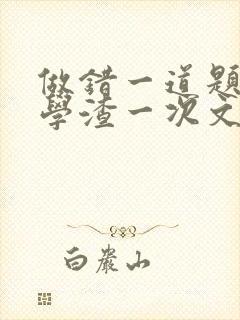 做錯一道題
學渣一次文
白巖山